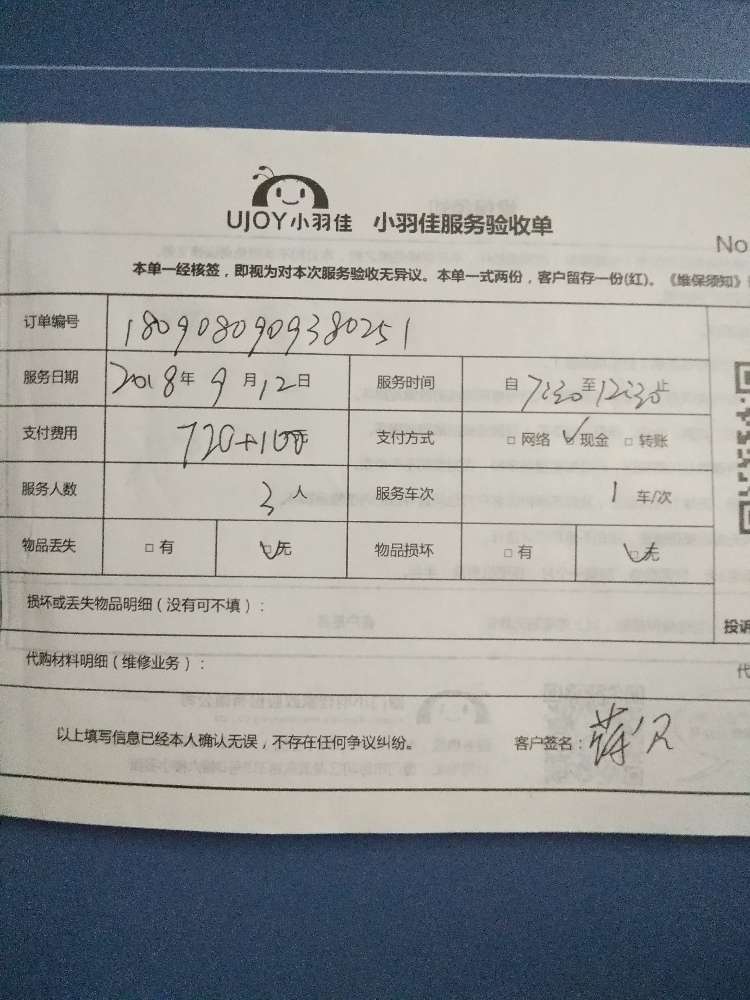 UJOY小羽佳 小羽佳服务验收单
No
本单一经核签，即视为对本次服务验收无异议。本单一式两份，客户留存一份(红)。《维保须知》
订单编号 1809080909380251
服务日期 2018年9月12日 服务时间 自7:30至12:30止
支付费用 720+100 支付方式 □网络 ☑现金 □转账
服务人数 3人 服务车次 1车/次
物品丢失 □有 ☑无 物品损坏 □有 ☑无
损坏或丢失物品明细（没有可不填）：
投诉
代购材料明细（维修业务）：
代
以上填写信息已经本人确认无误，不存在任何争议纠纷。 客户签名：